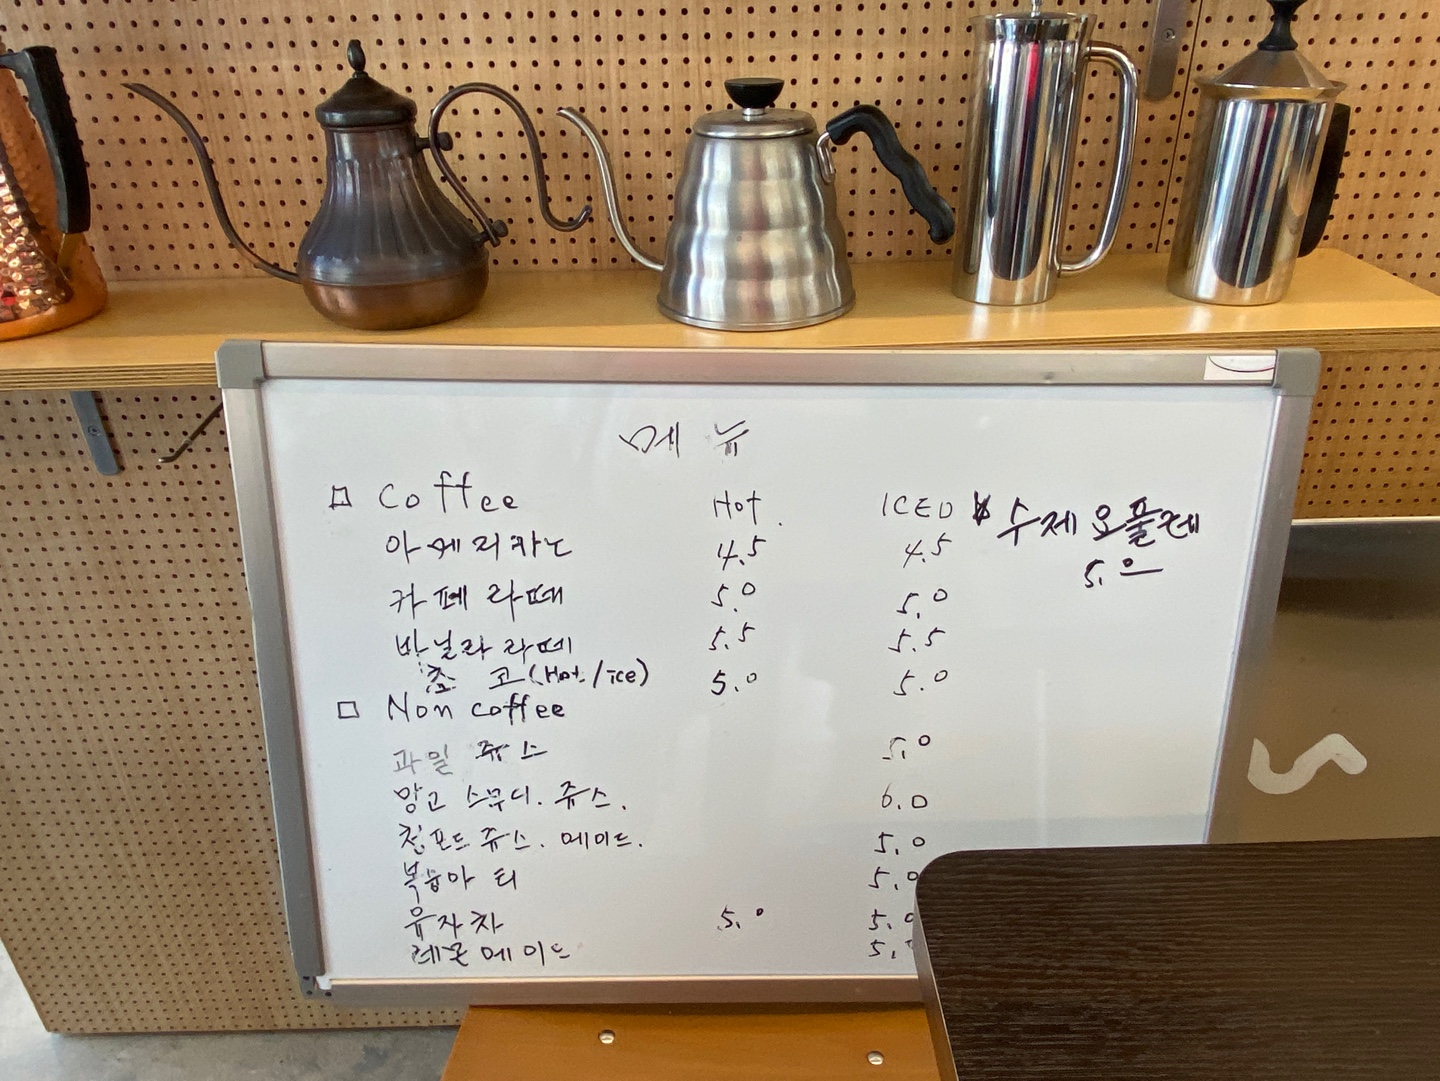 메 뉴
□ Coffee Hot. ICED
아메리카노 4.5 4.5
카페 라떼 5.0 5.0
바닐라 라떼 5.5 5.5
초 코(Hot/ice) 5.0 5.0
수제 요플레
5.0
□ Non coffee
과일 쥬스 5.0
망고 스무디. 쥬스. 6.0
청포도 쥬스. 에이드. 5.0
복숭아 티 5.0
유자차 5.0 5.0
레몬에이드